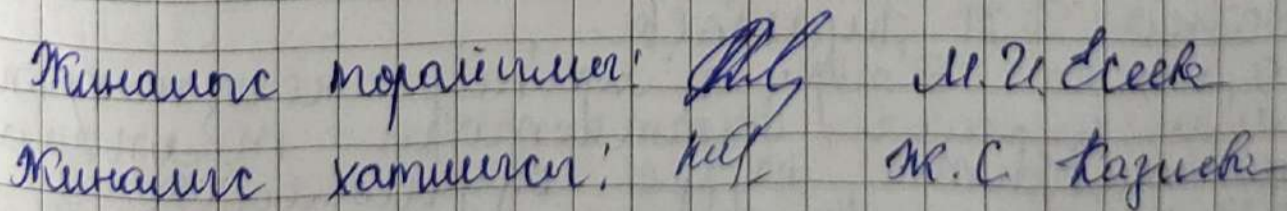 Жиналыс торайымы: М.И. Есеева
Жиналыс хатшысы: Ж.С. Казиева